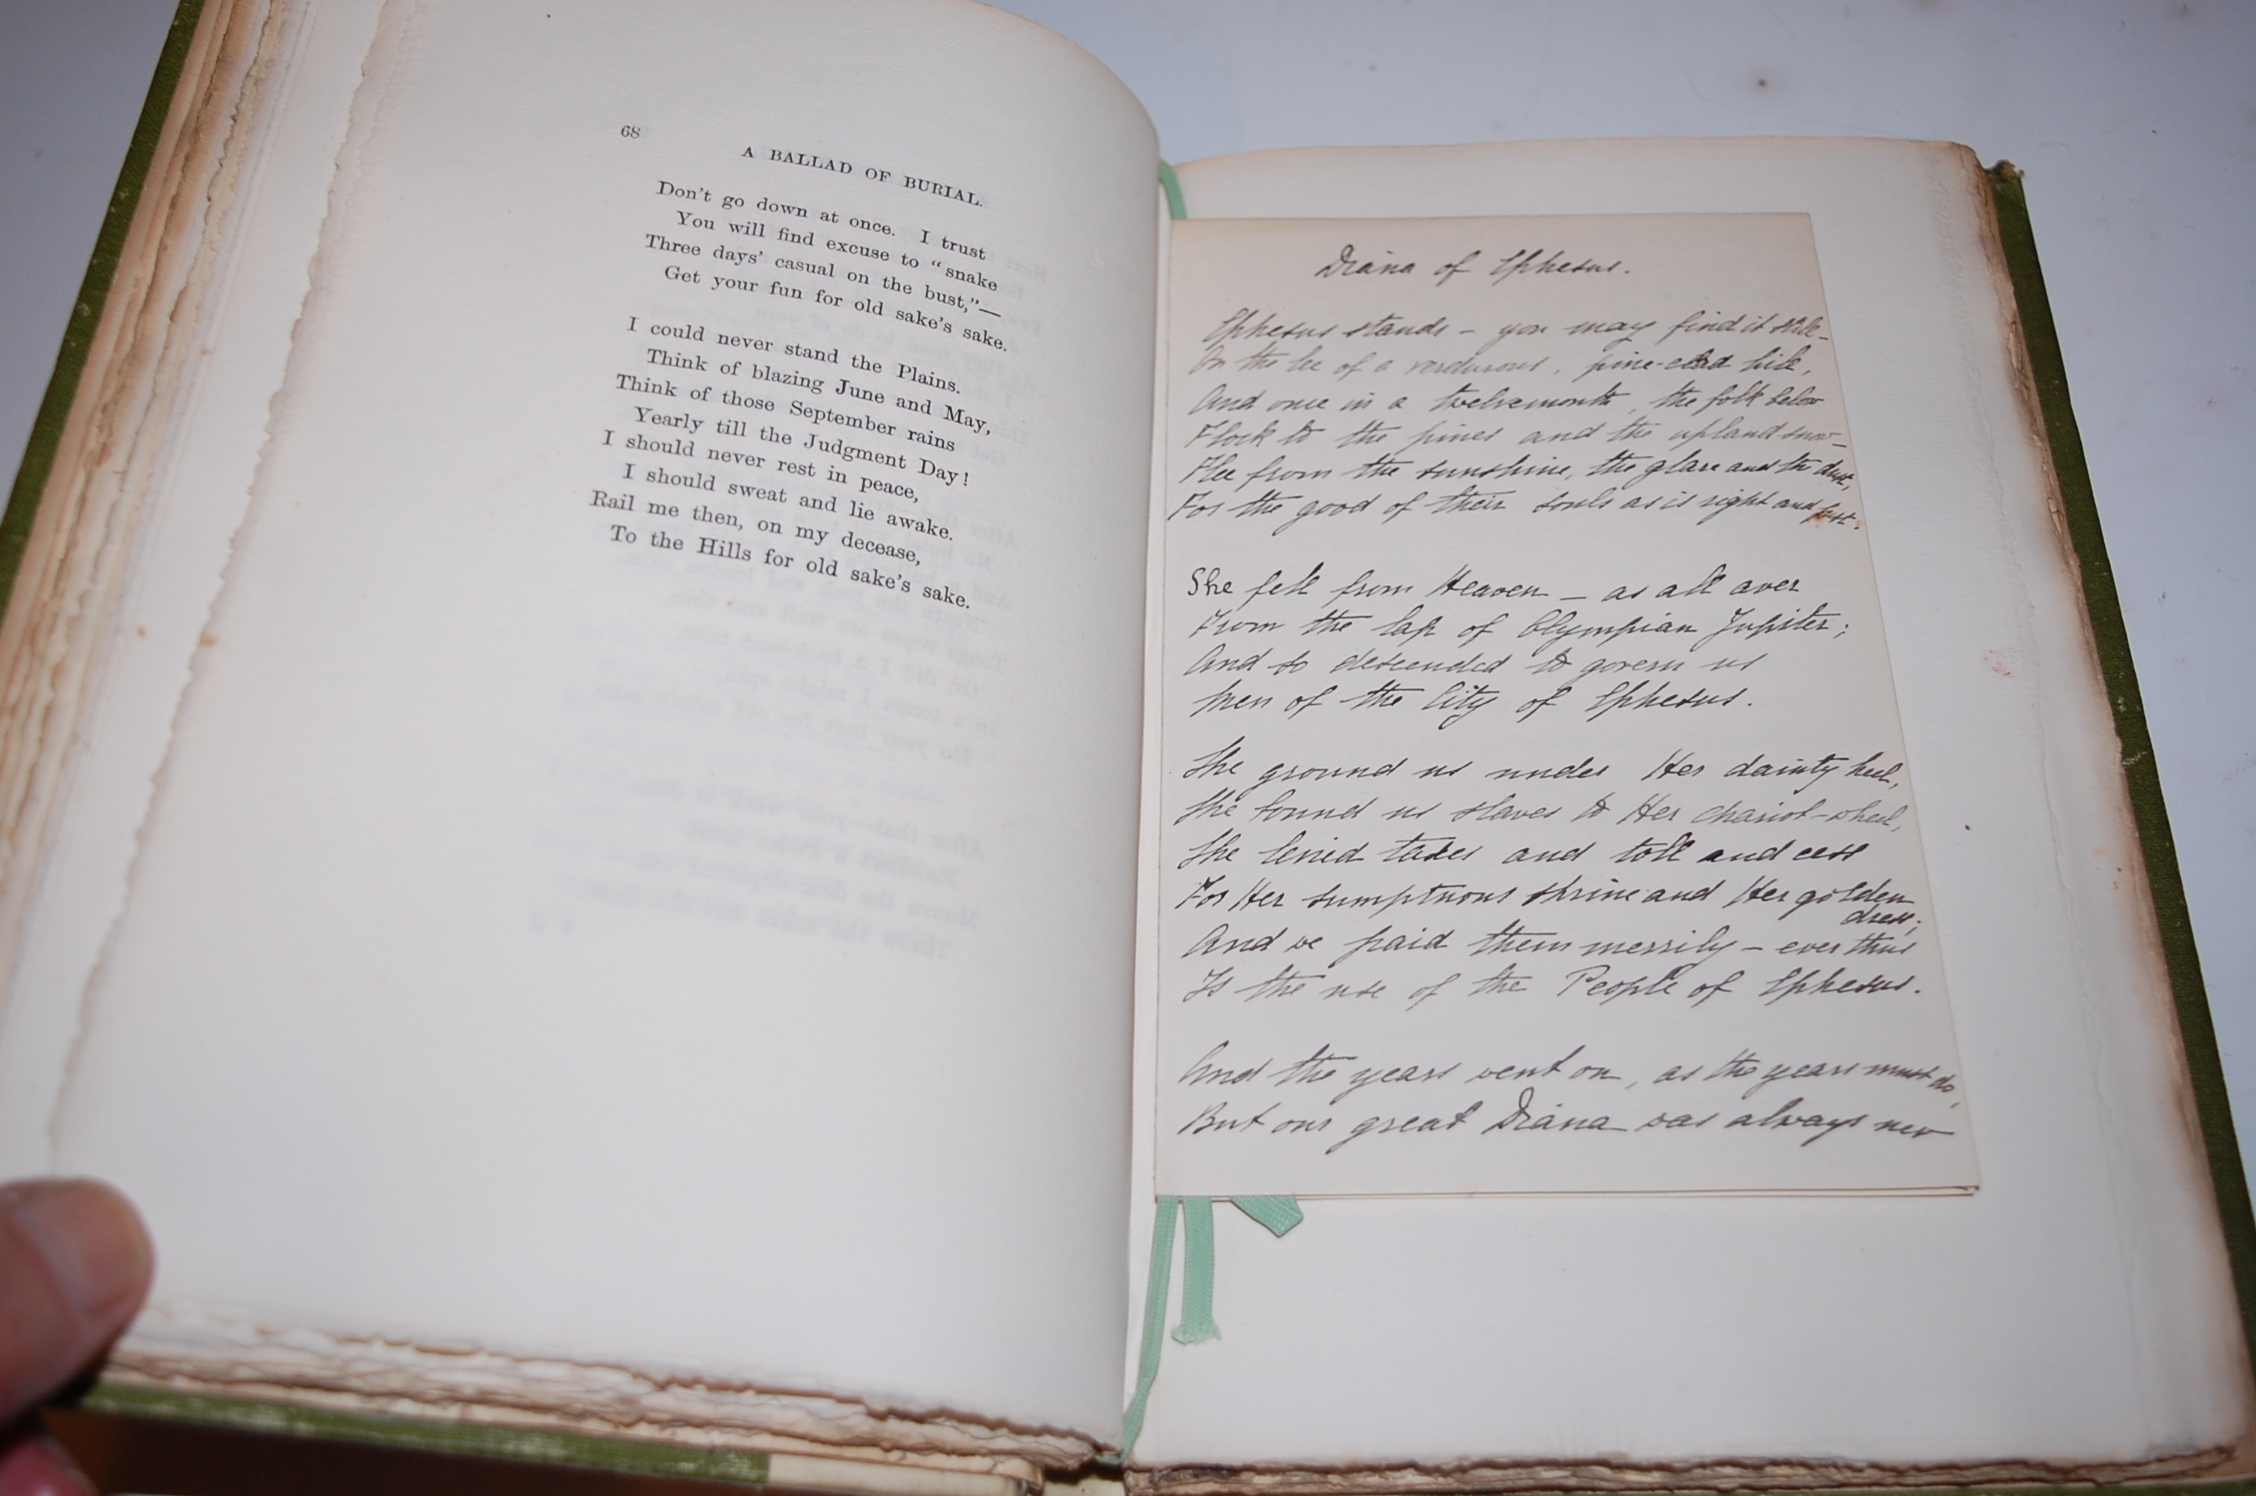 68
A BALLAD OF BURIAL.
Don't go down at once. I trust
You will find excuse to "snake
Three days' casual on the bust,"—
Get your fun for old sake's sake.
I could never stand the Plains.
Think of blazing June and May,
Think of those September rains
Yearly till the Judgment Day!
I should never rest in peace,
I should sweat and lie awake.
Rail me then, on my decease,
To the Hills for old sake's sake.
Diana of Ephesus.
Ephesus stands – you may find it still –
On the lee of a verdurous, pine-clad hill,
And once in a twelvemonth, the folk below
Flock to the pines and the upland snow –
Flee from the sunshine, the glare and the dust,
For the good of their souls as is right and just.
She fell from Heaven – as all aver
From the lap of Olympian Jupiter;
And so descended to govern us
Men of the City of Ephesus.
She ground us under Her dainty heel,
She bound us slaves to Her chariot-wheel,
She levied taxes and toll and cess
For Her sumptuous shrine and Her golden
dress;
And we paid them merrily – ever thus
Is the use of the People of Ephesus.
And the years went on, as the years must do,
But our great Diana was always new